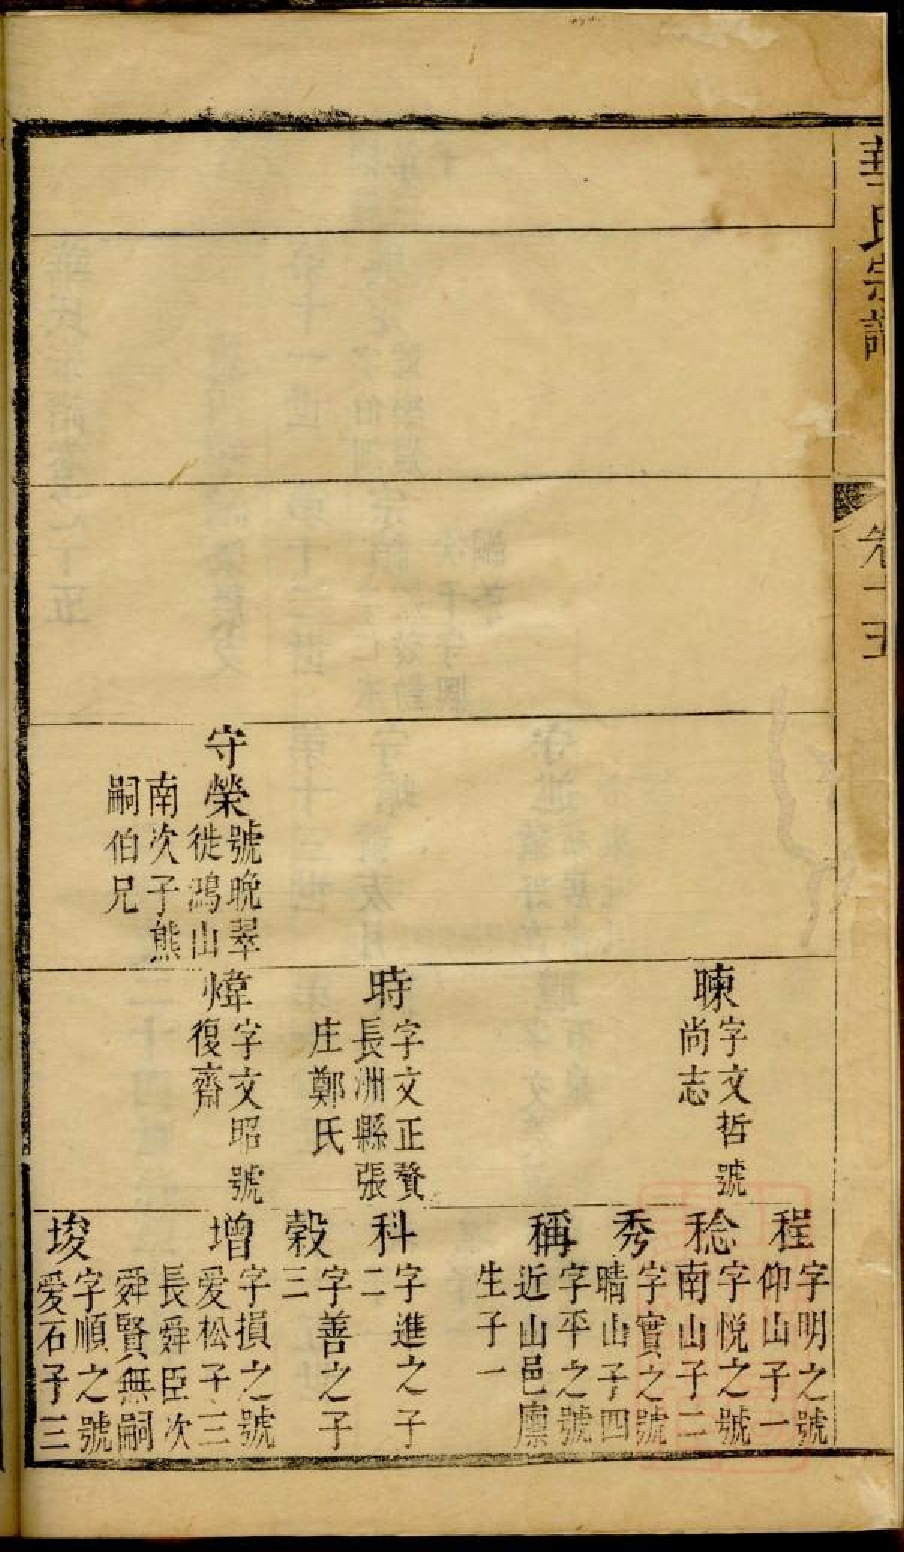 華氏宗譜
卷十五
守榮
號晚翠
徙鴻山
南次子熊
嗣伯兄
暕
字文哲號
尚志
時
字文正贅
長洲縣張
庄鄭氏
煒
字文昭號
復齋
程
字明之號
仰山子一
稔
字悅之號
南山子二
秀
字實之號
晴山子四
稱
字平之號
近山邑廩
生子一
科
字進之子
二
穀
字善之子
三
增
字損之號
爱松子三
長舜臣次
舜賢無嗣
埈
字順之號
爱石子三